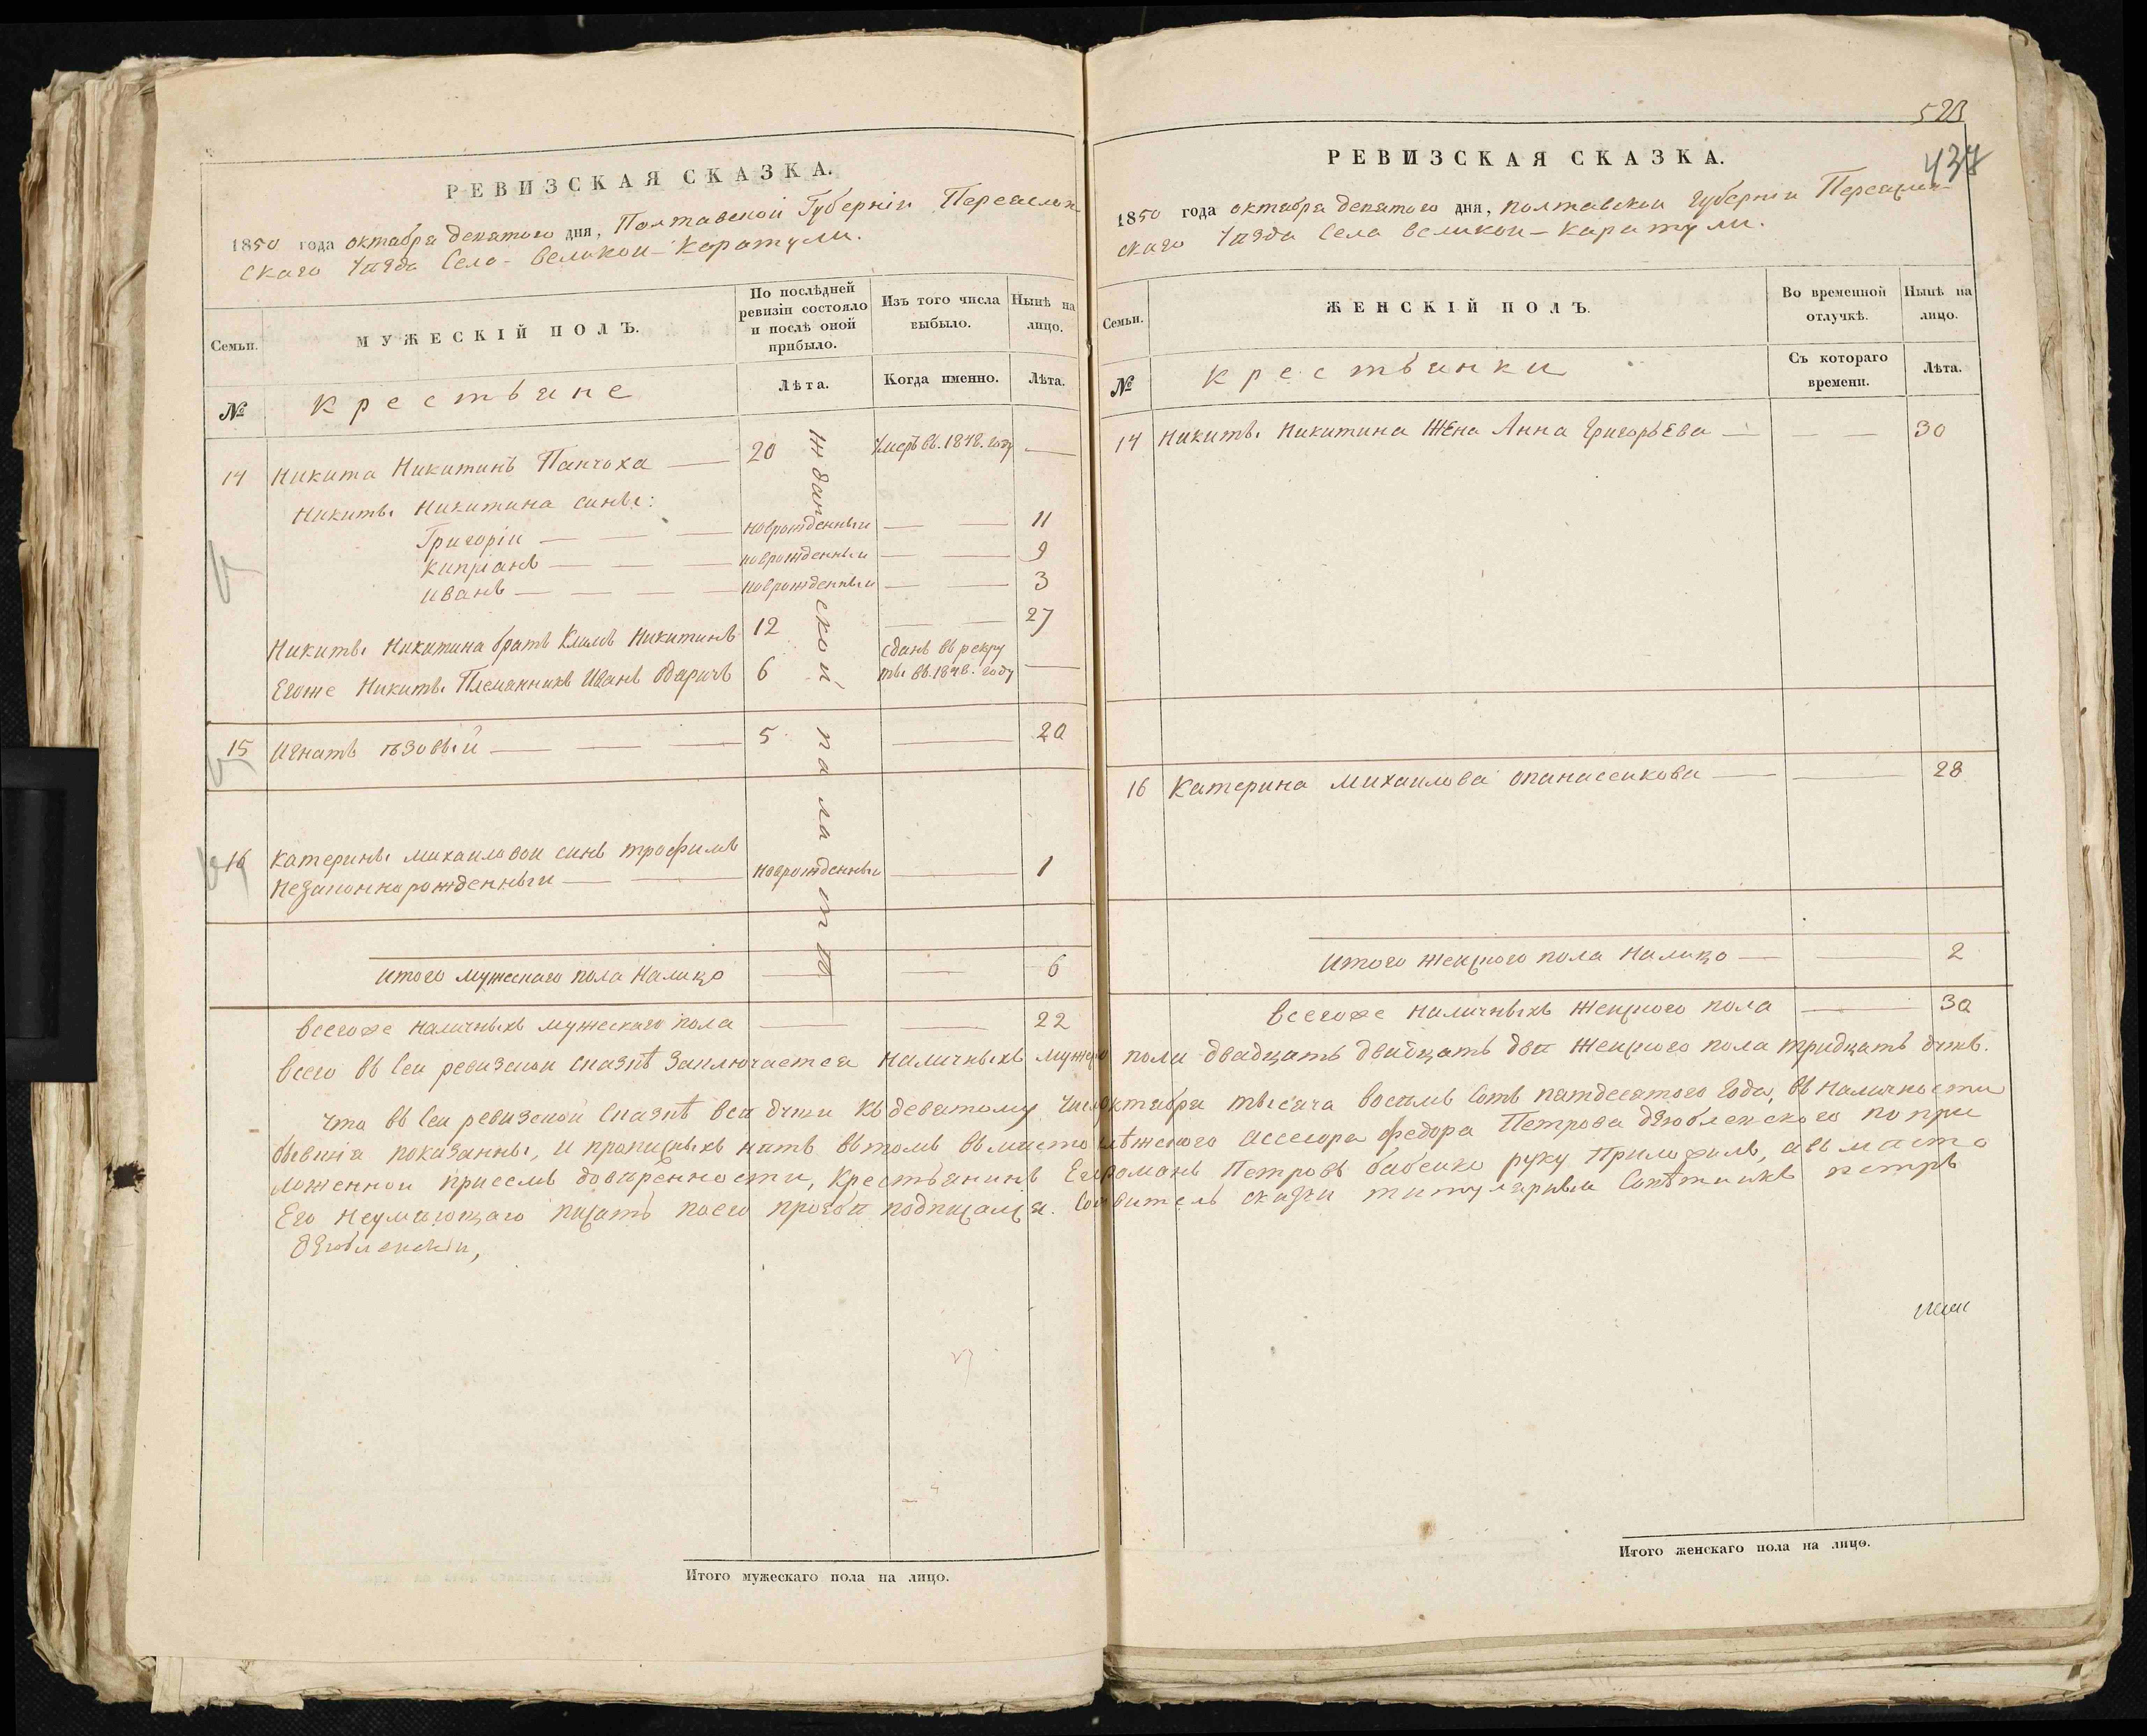 РЕВИЗСКАЯ СКАЗКА.
1850 года октабра девятого дня, Полтавской Губерніи Переаслов
скаго Уѣзда Села Великои-Каратули.
Семьи.
МУЖЕСКІЙ ПОЛЪ.
По послѣдней
ревизіи состояло
и послѣ оной
прибыло.
Изъ того числа
выбыло.
Нынѣ на
лицо.
№
крестьяне
Лѣта.
Когда именно.
Лѣта.
14 Никита Никитинъ Панчоха — 20 Умеръ въ 1848. году —
Никиты Никитина сины:
Григоріи — новрожденныи — 11
Кипріанъ — новрожденныи — 9
Иванъ — новрожденныи — 3
Никиты Никитина братъ Климъ Никитинъ 12 — 27
Егоже Никиты Племанникъ Иванъ Одаричъ 6 сданъ въ рекру
ты въ 1848. году —
15 Игнатъ — 5 — 20
16 Катерины Михаиловои синъ трофимъ
незаконнорожденныи — новрожденныи — 1
Итого мужескаго пола Налицо — 6
Всегоже наличныхъ мужескаго пола — 22
палатѣ
528
437
РЕВИЗСКАЯ СКАЗКА.
1850 года октабра девятого дня, полтавскои губерніи Переаслов-
скаго Уѣзда Села великои-Каратули.
Семьи.
ЖЕНСКІЙ ПОЛЪ.
Во временной
отлучкѣ.
Нынѣ на
лицо.
№
крестьянки
Съ котораго
времени.
Лѣта.
14 Никиты Никитина Жена Анна Григорьева — 30
16 Катерина Михаилова опанасенкова — 28
Итого женского пола налицо — 2
Всегоже наличныхъ женского пола — 30
Всего въ сеи ревизскои сказкѣ заключается наличныхъ мужеско пола двадцать двадцать два женского пола тридцать душъ.
Что въ сеи ревизской сказкѣ всѣ души къ девятому числ октабра тысача восемь сотъ патдесатого года, въ наличности
бывшіа показанны, и прописныхъ нѣтъ вътомъ вместо асесора федора Петрова по при
ложеннои присемъ довѣренности, крестьянинъ Петровъ бабенко руку Приложилъ, авъ место
Его неумѣющаго писать поего прозбѣ подписалса. сказки титулярныи Совѣтникъ петръ
Итого мужескаго пола на лицо.
Итого женскаго пола на лицо.